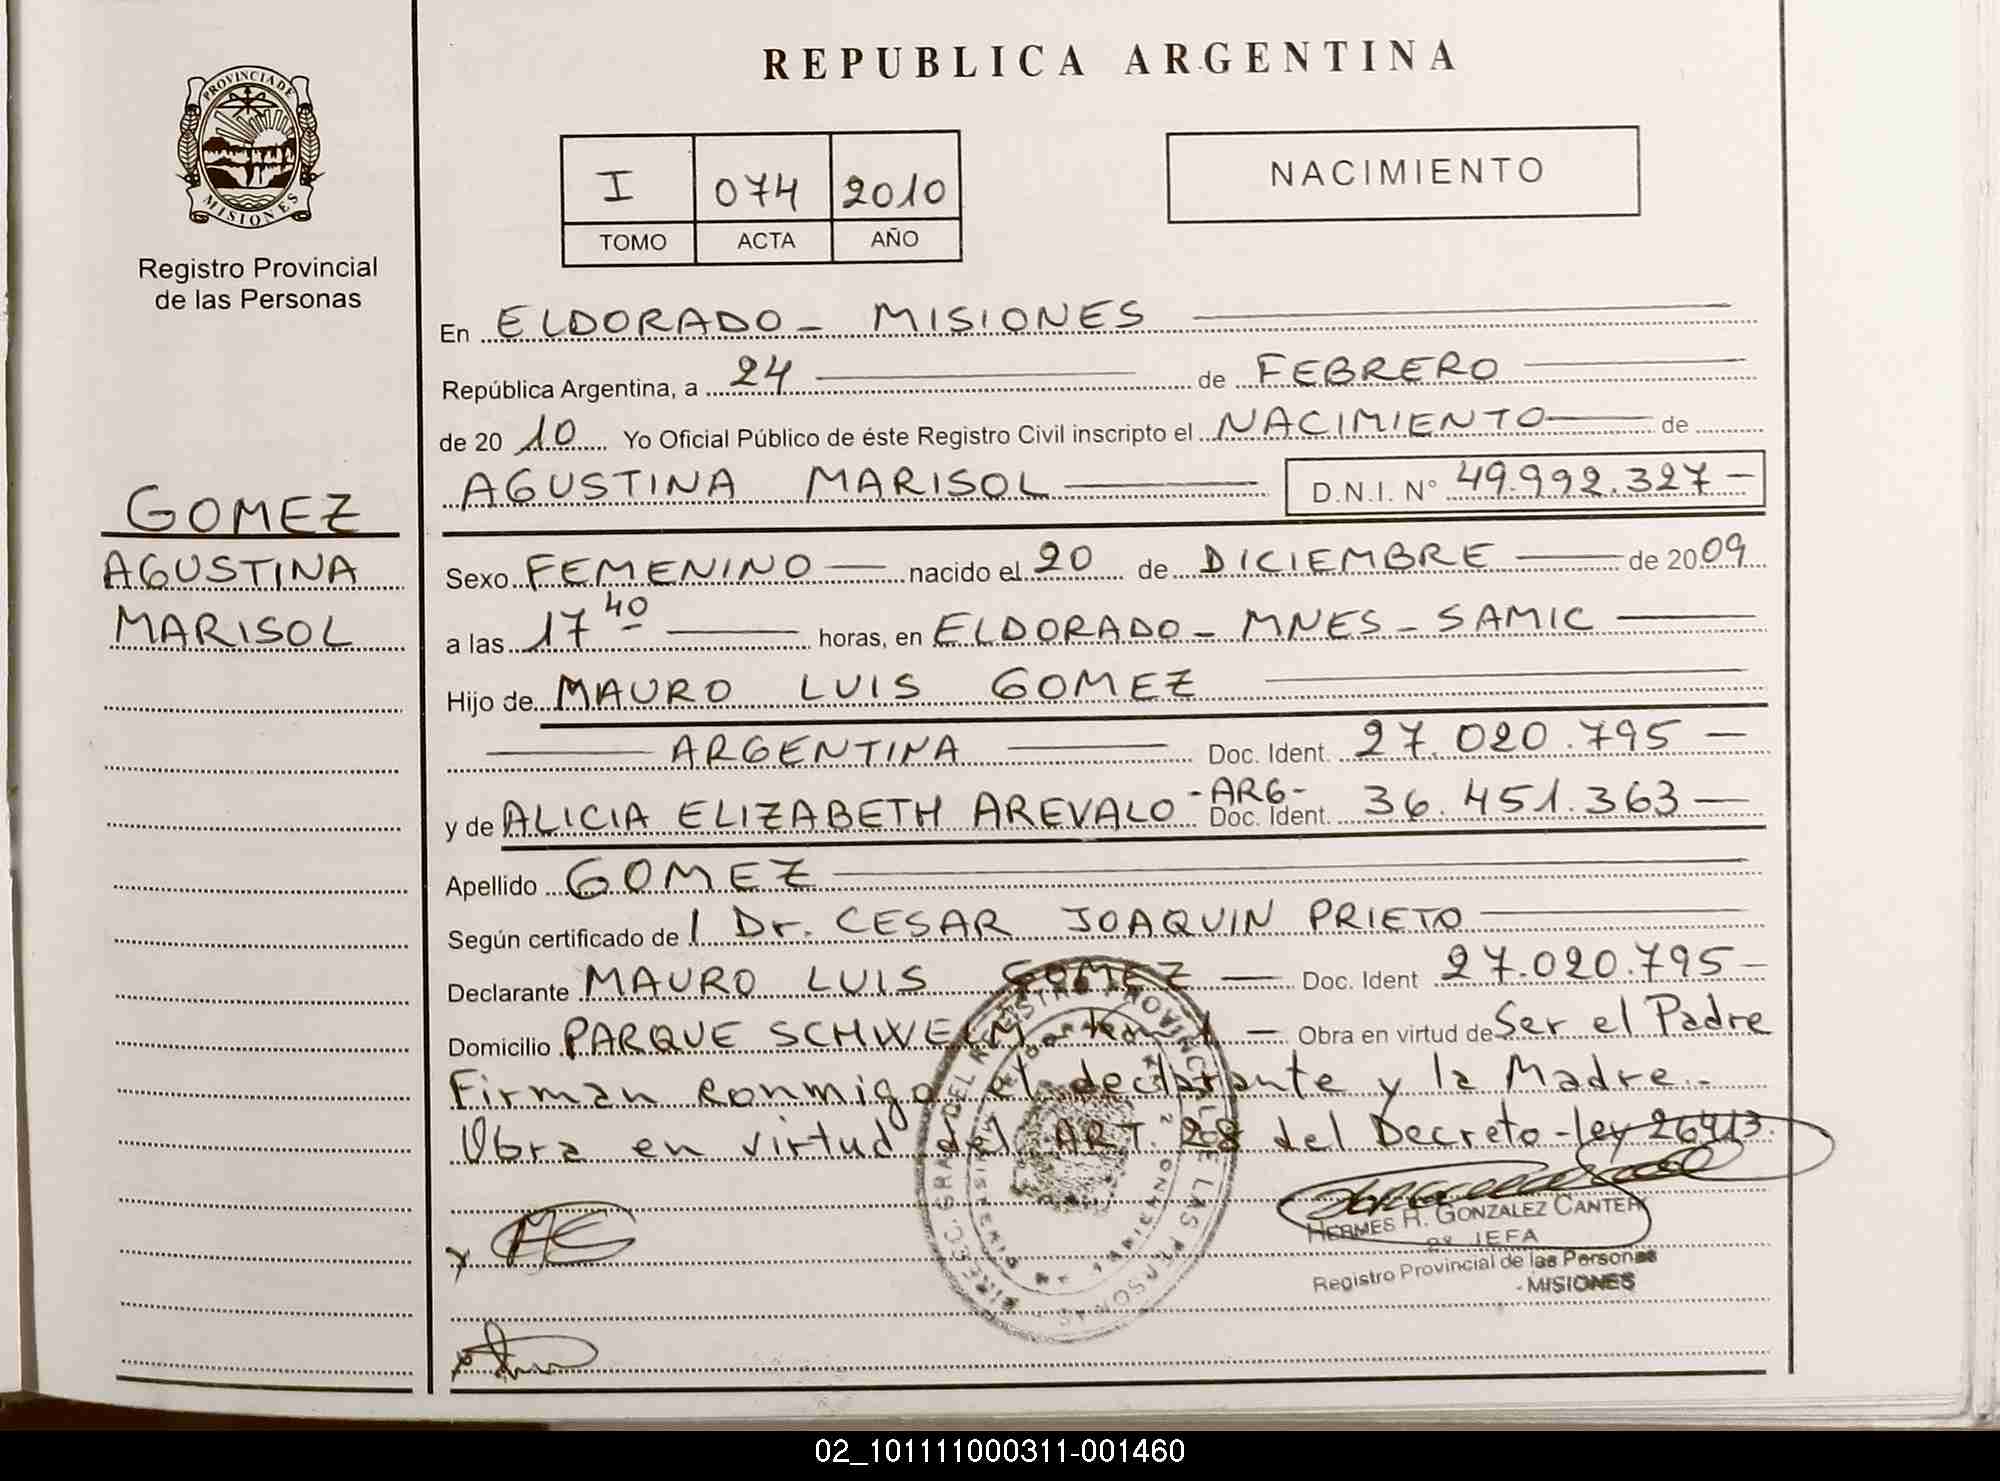 REPUBLICA ARGENTINA
PROVINCIA DE
MISIONES
Registro Provincial
de las Personas
I 074 2010
TOMO ACTA AÑO
NACIMIENTO
GOMEZ
AGUSTINA
MARISOL
En ELDORADO - MISIONES
República Argentina, a 24 de FEBRERO
de 20 10 Yo Oficial Público de éste Registro Civil inscripto el NACIMIENTO de
AGUSTINA MARISOL D.N.I. N° 49.992.327 -
Sexo FEMENINO nacido el 20 de DICIEMBRE de 2009
a las 17 40 horas, en ELDORADO - MNES - SAMIC
Hijo de MAURO LUIS GOMEZ
ARGENTINA Doc. Ident. 27.020.795 -
y de ALICIA ELIZABETH AREVALO - ARG - Doc. Ident. 36.451.363 -
Apellido GOMEZ
Según certificado de l Dr. CESAR JOAQUIN PRIETO
Declarante MAURO LUIS GOMEZ - Doc. Ident 27.020.795 -
Domicilio PARQUE SCHWELM km 1 - Obra en virtud de Ser el Padre
Firman conmigo el declarante y la Madre.-
Obra en virtud del ART. 28 del Decreto-ley 26413.
HERMES R. GONZALEZ CANTER
JEFA
Registro Provincial de las Personas
- MISIONES
02_101111000311-001460